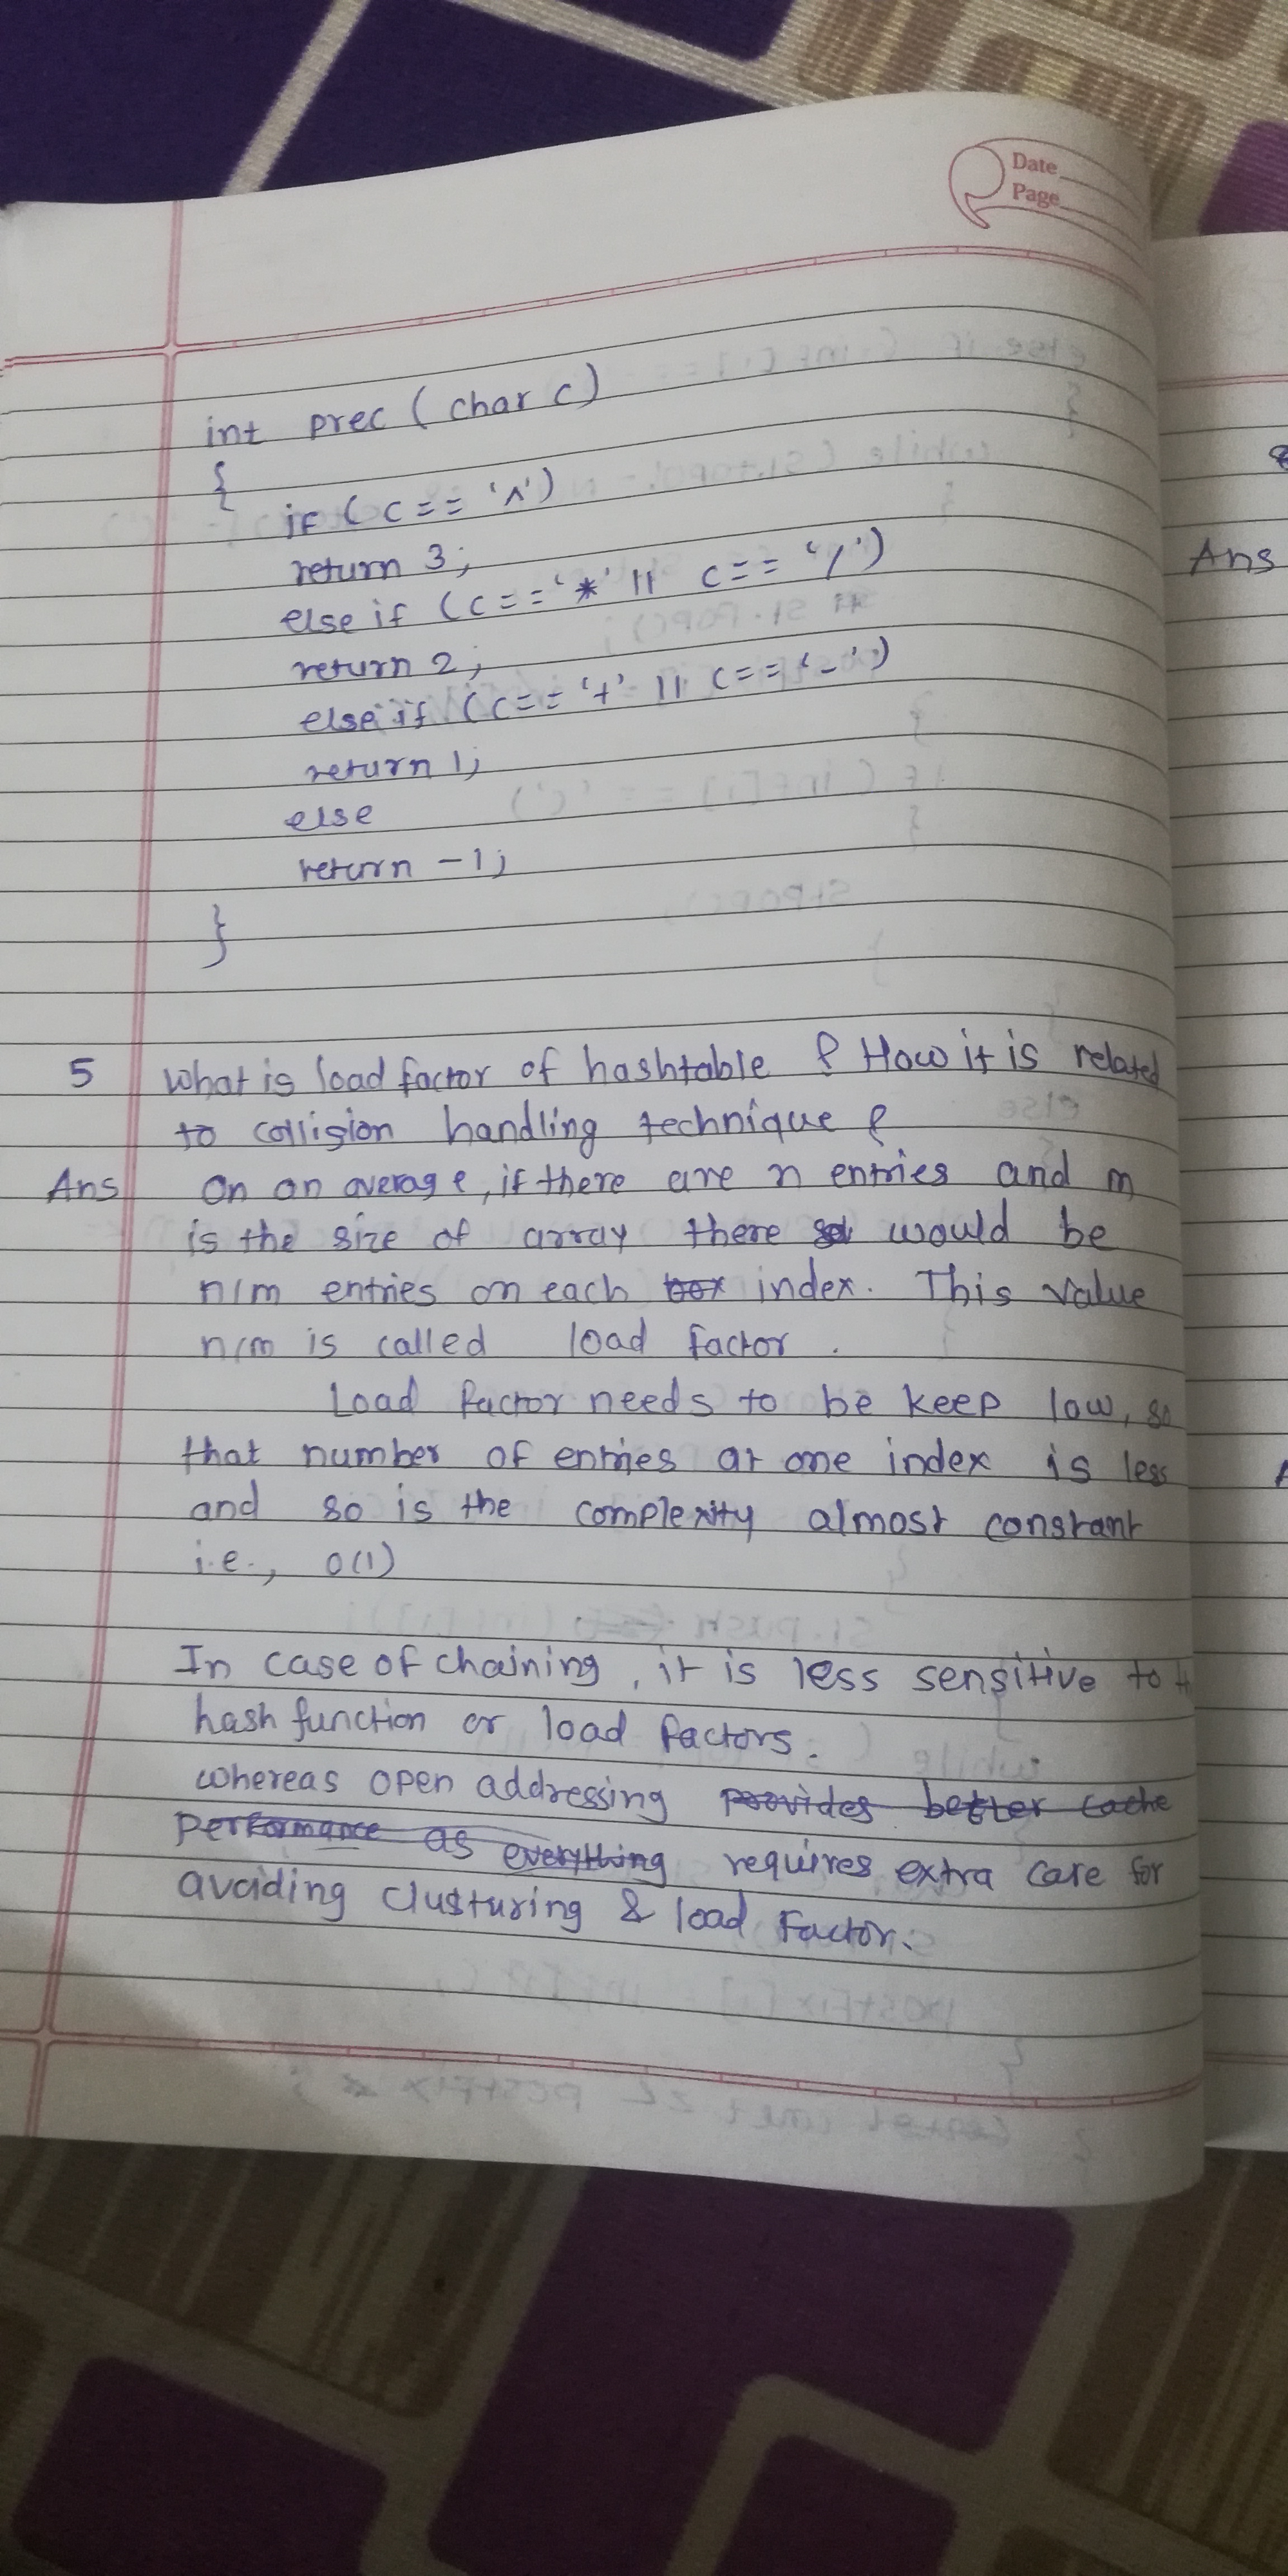 Date
Page
int prec ( char c )
{
if ( c == '^' )
return 3;
else if ( c == '*' || c == '/' )
return 2;
else if ( c == '+' || c == '-' )
return 1;
else
return -1;
}
5 What is load factor of hashtable ? How it is related
to collision handling technique ?
Ans
Ans On an average, if there are n entries and m
is the size of array there would be
n/m entries on each box index. This value
n/m is called load factor.
Load factor needs to be keep low, so
that number of entries at one index is less
and so is the complexity almost constant
i.e., O(1)
In case of chaining, it is less sensitive to
hash function or load factors.
whereas open addressing provides better cache
performance as everything requires extra care for
avoiding clusturing & load factor.